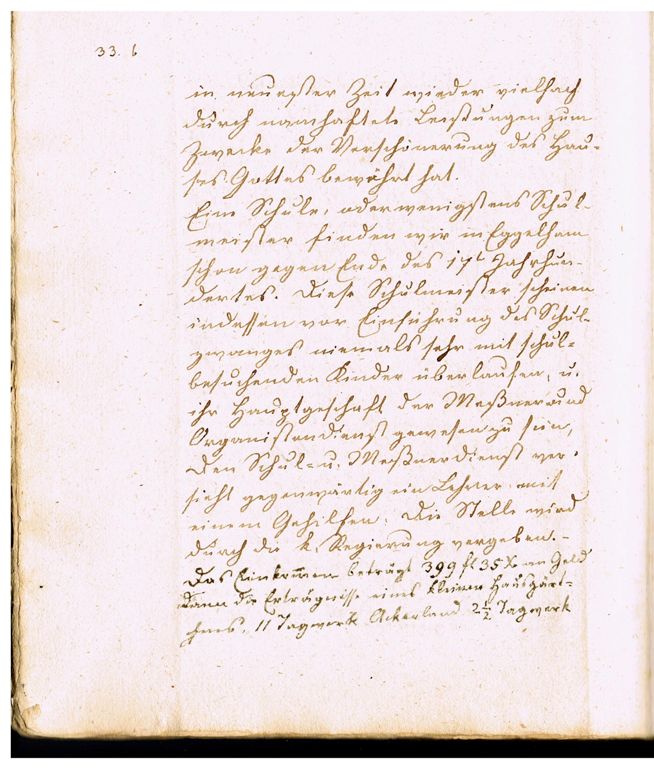 33. b
in neuester Zeit wieder vielfach
durch namhafte Leistungen zum
Zwecke der Verschönerung des Hau-
ses Gottes bewährt hat.
Eine Schule, oder wenigstens Schul-
meister finden wir in Eggelham
schon gegen Ende des 17t Jahrhun-
dertes. Diese Schulmeister scheinen
indessen vor Einführung des Schul-
zwanges niemals sehr mit schul-
besuchenden Kinder überlaufen, u.
ihr Hauptgeschaft der Meßner und
Organistendienst gewesen zu sein,
Den Schul- u. Meßnerdienst ver-
sieht gegenwärtig ein Lehrer mit
einem Gehilfen. Die Stelle wird
durch die k. Regierung vergeben. -
Das Einkommen beträgt 399 fl 35 x an Geld
dann die Erträgnisse eines kleinen Hausgärt-
chens, 11 Tagwerk Ackerland 2 1/2 Tagwerk